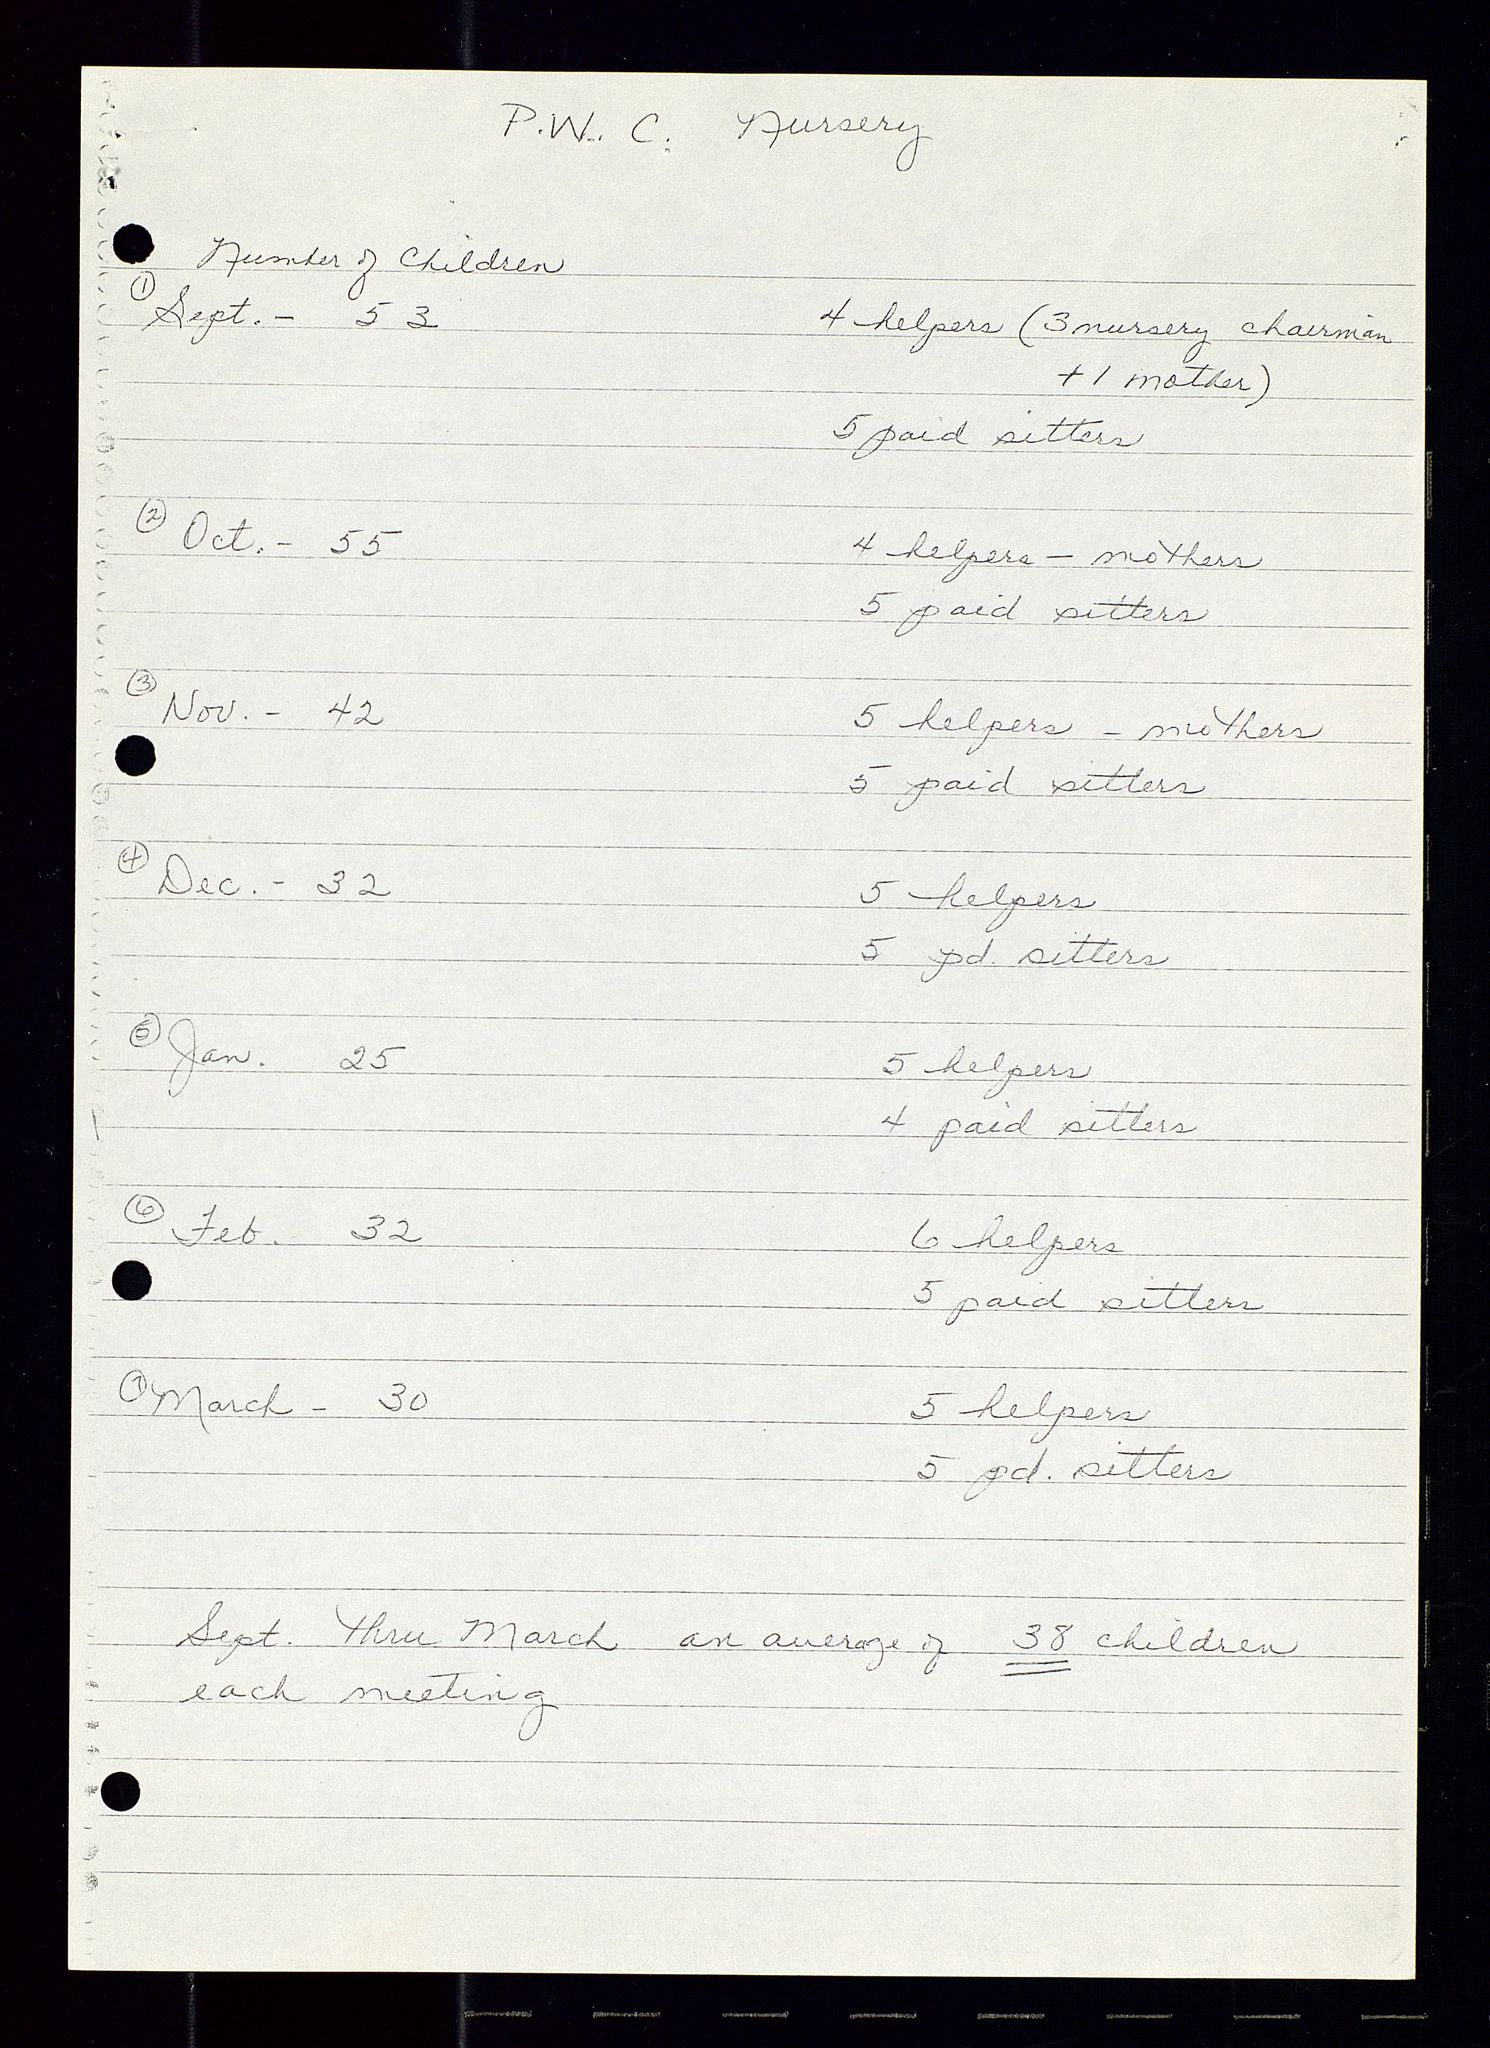 P.W.C. Nursery
Number of Children
① Sept. - 53 4 helpers (3 nursery chairman
+ 1 mother)
5 paid sitters
② Oct. - 55 4 helpers - mothers
5 paid sitters
③ Nov. - 42 5 helpers - mothers
5 paid sitters
④ Dec. - 32 5 helpers
5 pd. sitters
⑤ Jan. 25 5 helpers
4 paid sitters
⑥ Feb. 32 6 helpers
5 paid sitters
⑦ March - 30 5 helpers
5 pd. sitters
Sept. thru March an average of 38 children
each meeting